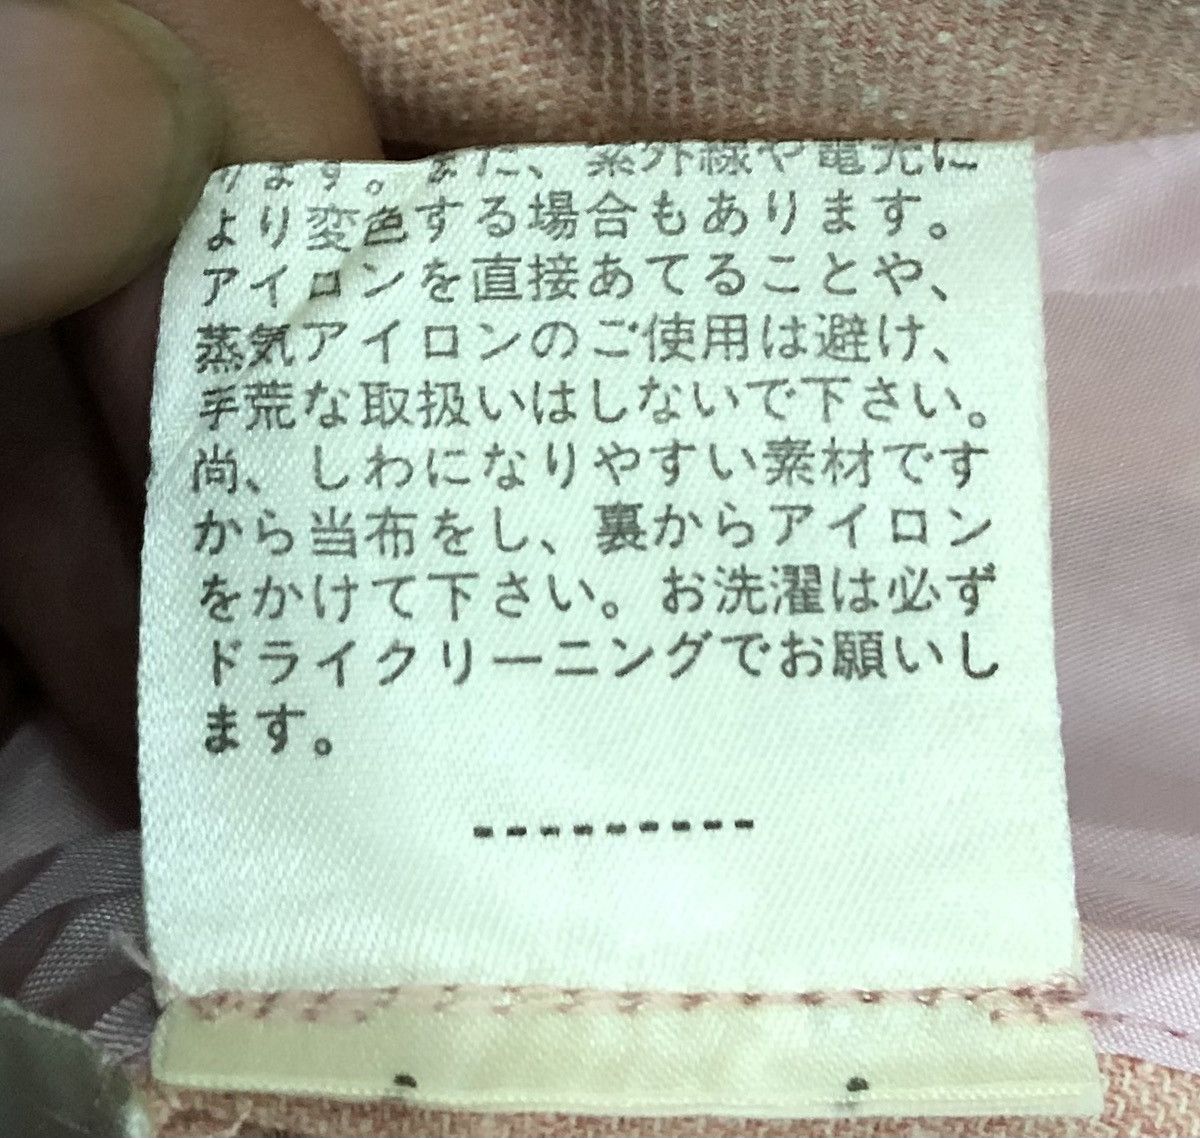 ります。また、紫外線や電光に
より変色する場合もあります。
アイロンを直接あてることや、
蒸気アイロンのご使用は避け、
手荒な取扱いはしないで下さい。
尚、しわになりやすい素材です
から当布をし、裏からアイロン
をかけて下さい。お洗濯は必ず
ドライクリーニングでお願いし
ます。
---------